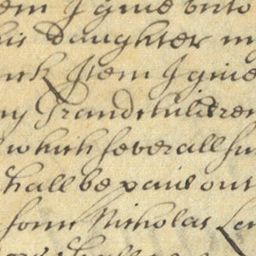 Item I give unto
his daughter my
Item I give
my Grandchildren
which severall su
shall be paid out
sonne Nicholas Len
shall